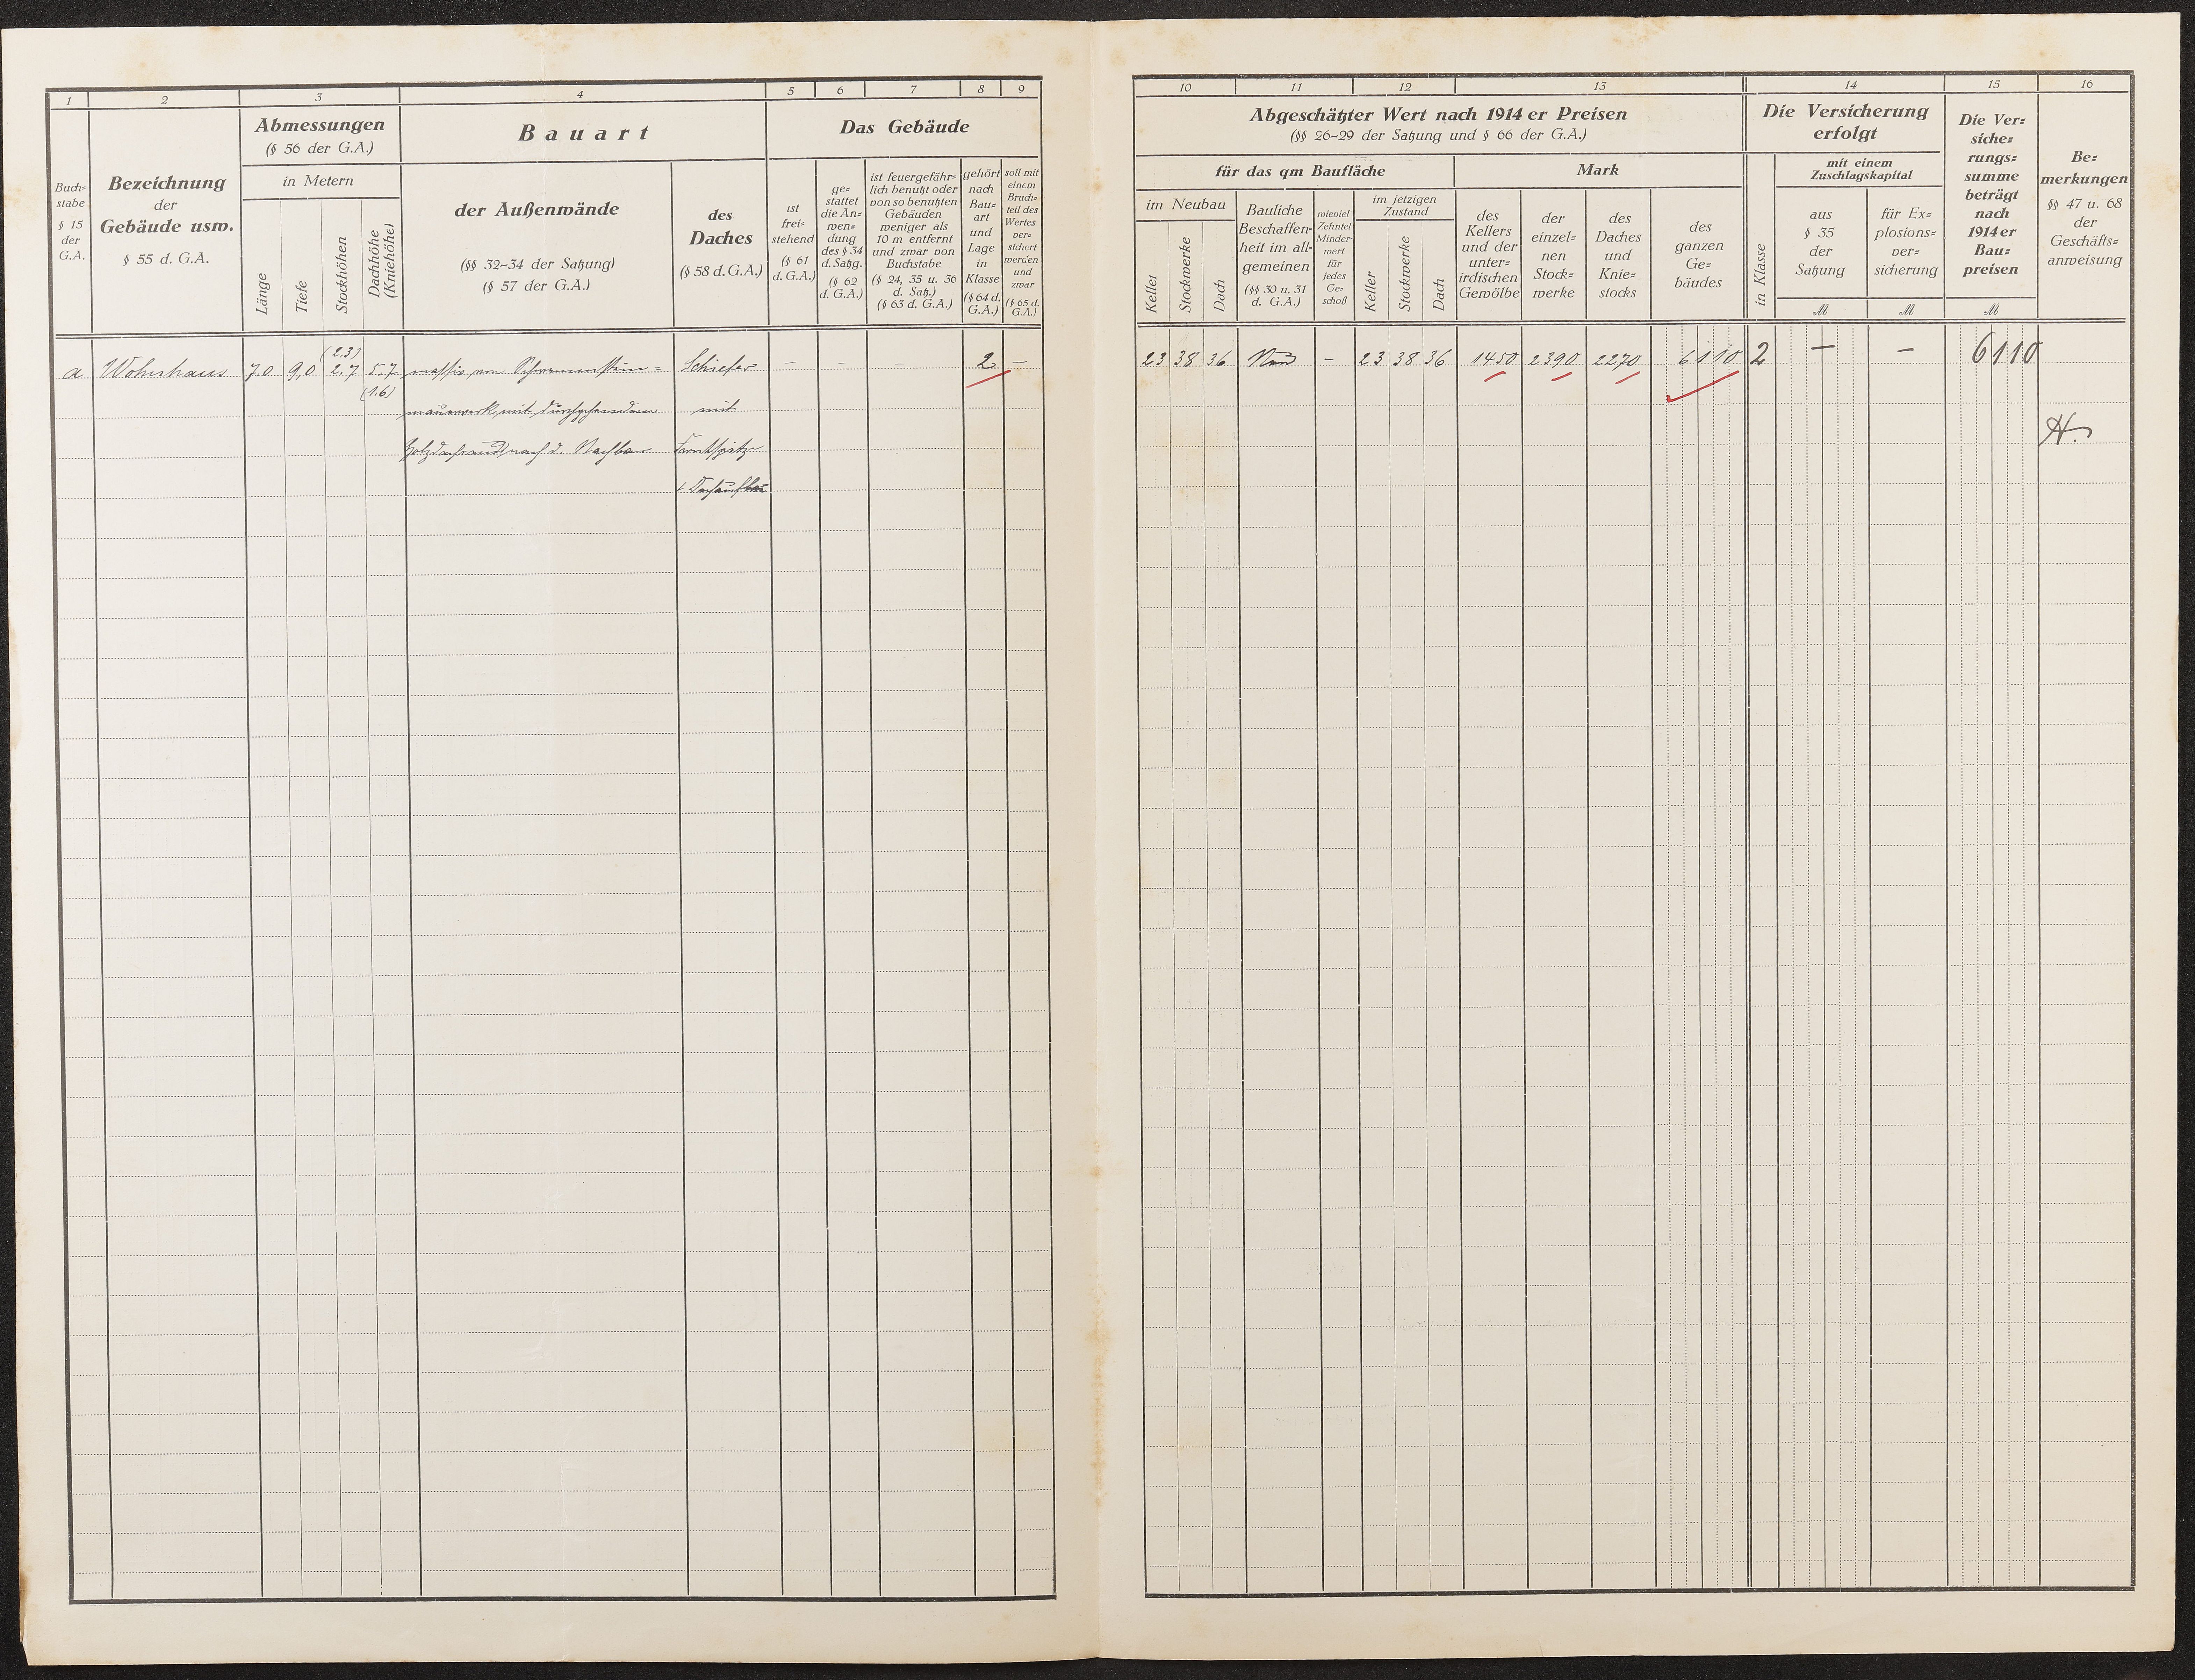 1 2 3 4 5 6 7 8 9
Buch=
stabe
§ 15
der
G.A.
Bezeichnung
der
Gebäude usw.
§ 55 d. G.A.
Abmessungen
(§ 56 der G.A.)
in Metern
Länge
Tiefe
Stockhöhen
Dachhöhe
(Kniehöhe)
Bauart
der Außenwände
(§§ 32-34 der Satzung)
(§ 57 der G.A.)
des
Daches
(§ 58 d. G.A.)
Das Gebäude
ist
frei=
stehend
(§ 61
d. G.A.)
ge=
stattet
die An=
wen=
dung
des § 34
d. Satzg.
(§ 62
d. G.A.)
ist feuergefähr=
lich benutzt oder
von so benutzten
Gebäuden
weniger als
10 m entfernt
und zwar von
Buchstabe
(§ 24, 35 u. 36
d. Satz.)
(§ 63 d. G.A.)
gehört
nach
Bau=
art
und
Lage
in
Klasse
(§ 64 d.
G.A.)
soll mit
einem
Bruch=
teil des
Wertes
ver=
sichert
werden
und
zwar
(§ 65 d.
G.A.)
(2.3)
a Wohnhaus 7.0 9,0 2.7 5.7 massiv von Schwemmstein= Schiefer – – – 2. –
(1.6)
mauerwerk, mit durchgehendem mit
nach d. Nachbar Frontspitz
+ Dachaufbau
10 11 12 13 14 15 16
Abgeschätzter Wert nach 1914 er Preisen
(§§ 26-29 der Satzung und § 66 der G.A.)
für das qm Baufläche
im Neubau
Keller
Stockwerke
Dach
Bauliche
Beschaffen=
heit im all=
gemeinen
(§§ 30 u. 31
d. G.A.)
wieviel
Zehntel
Minder=
wert
für
jedes
Ge=
schoß
im jetzigen
Zustand
Keller
Stockwerke
Dach
Mark
des
Kellers
und der
unter=
irdischen
Gewölbe
der
einzel=
nen
Stock=
werke
des
Daches
und
Knie=
stocks
des
ganzen
Ge=
bäudes
Die Versicherung
erfolgt
in Klasse
mit einem
Zuschlagskapital
aus
§ 35
der
Satzung
M
für Ex=
plosions=
ver=
sicherung
M
Die Ver=
siche=
rungs=
summe
beträgt
nach
1914er
Bau=
preisen
M
Be=
merkungen
§§ 47 u. 68
der
Geschäfts=
anweisung
23 38 36 – 23 38 36 1450 2390 2270 6110 2 – – 6110